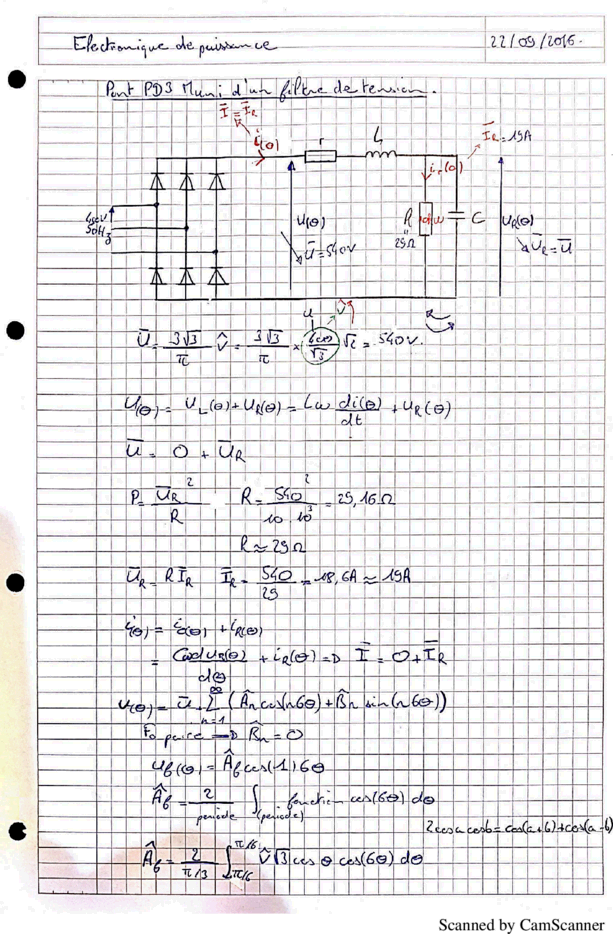 Electronique de puissance
22/09/2016.
Pont PD3 Muni d'un filtre de tension.
Ī = Ī_R
i(θ)
r
L
Ī_R = 19A
i_r(θ)
400V
50Hz
U(θ)
Ū = 540V
R
"
29Ω
C
U_R(θ)
Ū_R = Ū
Ū = 3√3/π V̂ = 3√3/π × 400/√3 √2 = 540V.
U(θ) = U_L(θ) + U_R(θ) = Lω di(θ)/dt + U_R(θ)
Ū = 0 + Ū_R
P = Ū_R²/R R = 540²/10.10³ = 29,16Ω
R ≈ 29Ω
Ū_R = R Ī_R Ī_R = 540/29 = 18,6A ≈ 19A
i(θ) = i_c(θ) + i_R(θ)
= Cω dU_R(θ)/dθ + i_R(θ) =D Ī = 0 + Ī_R
U(θ) = Ū + ∑_{n=1}^{∞} (Ân cos(n6θ) + B̂n sin(n6θ))
Fo paire =D B̂n = 0
U_6(θ) = Â_6 cos(1)6θ
Â_6 = 2/periode ∫_(periode) fonction cos(6θ) dθ
2cosa cosb = cos(a+b) + cos(a-b)
Â_6 = 2/π/3 ∫_{π/6}^{π/6} V̂√3 cos θ cos(6θ) dθ
Scanned by CamScanner